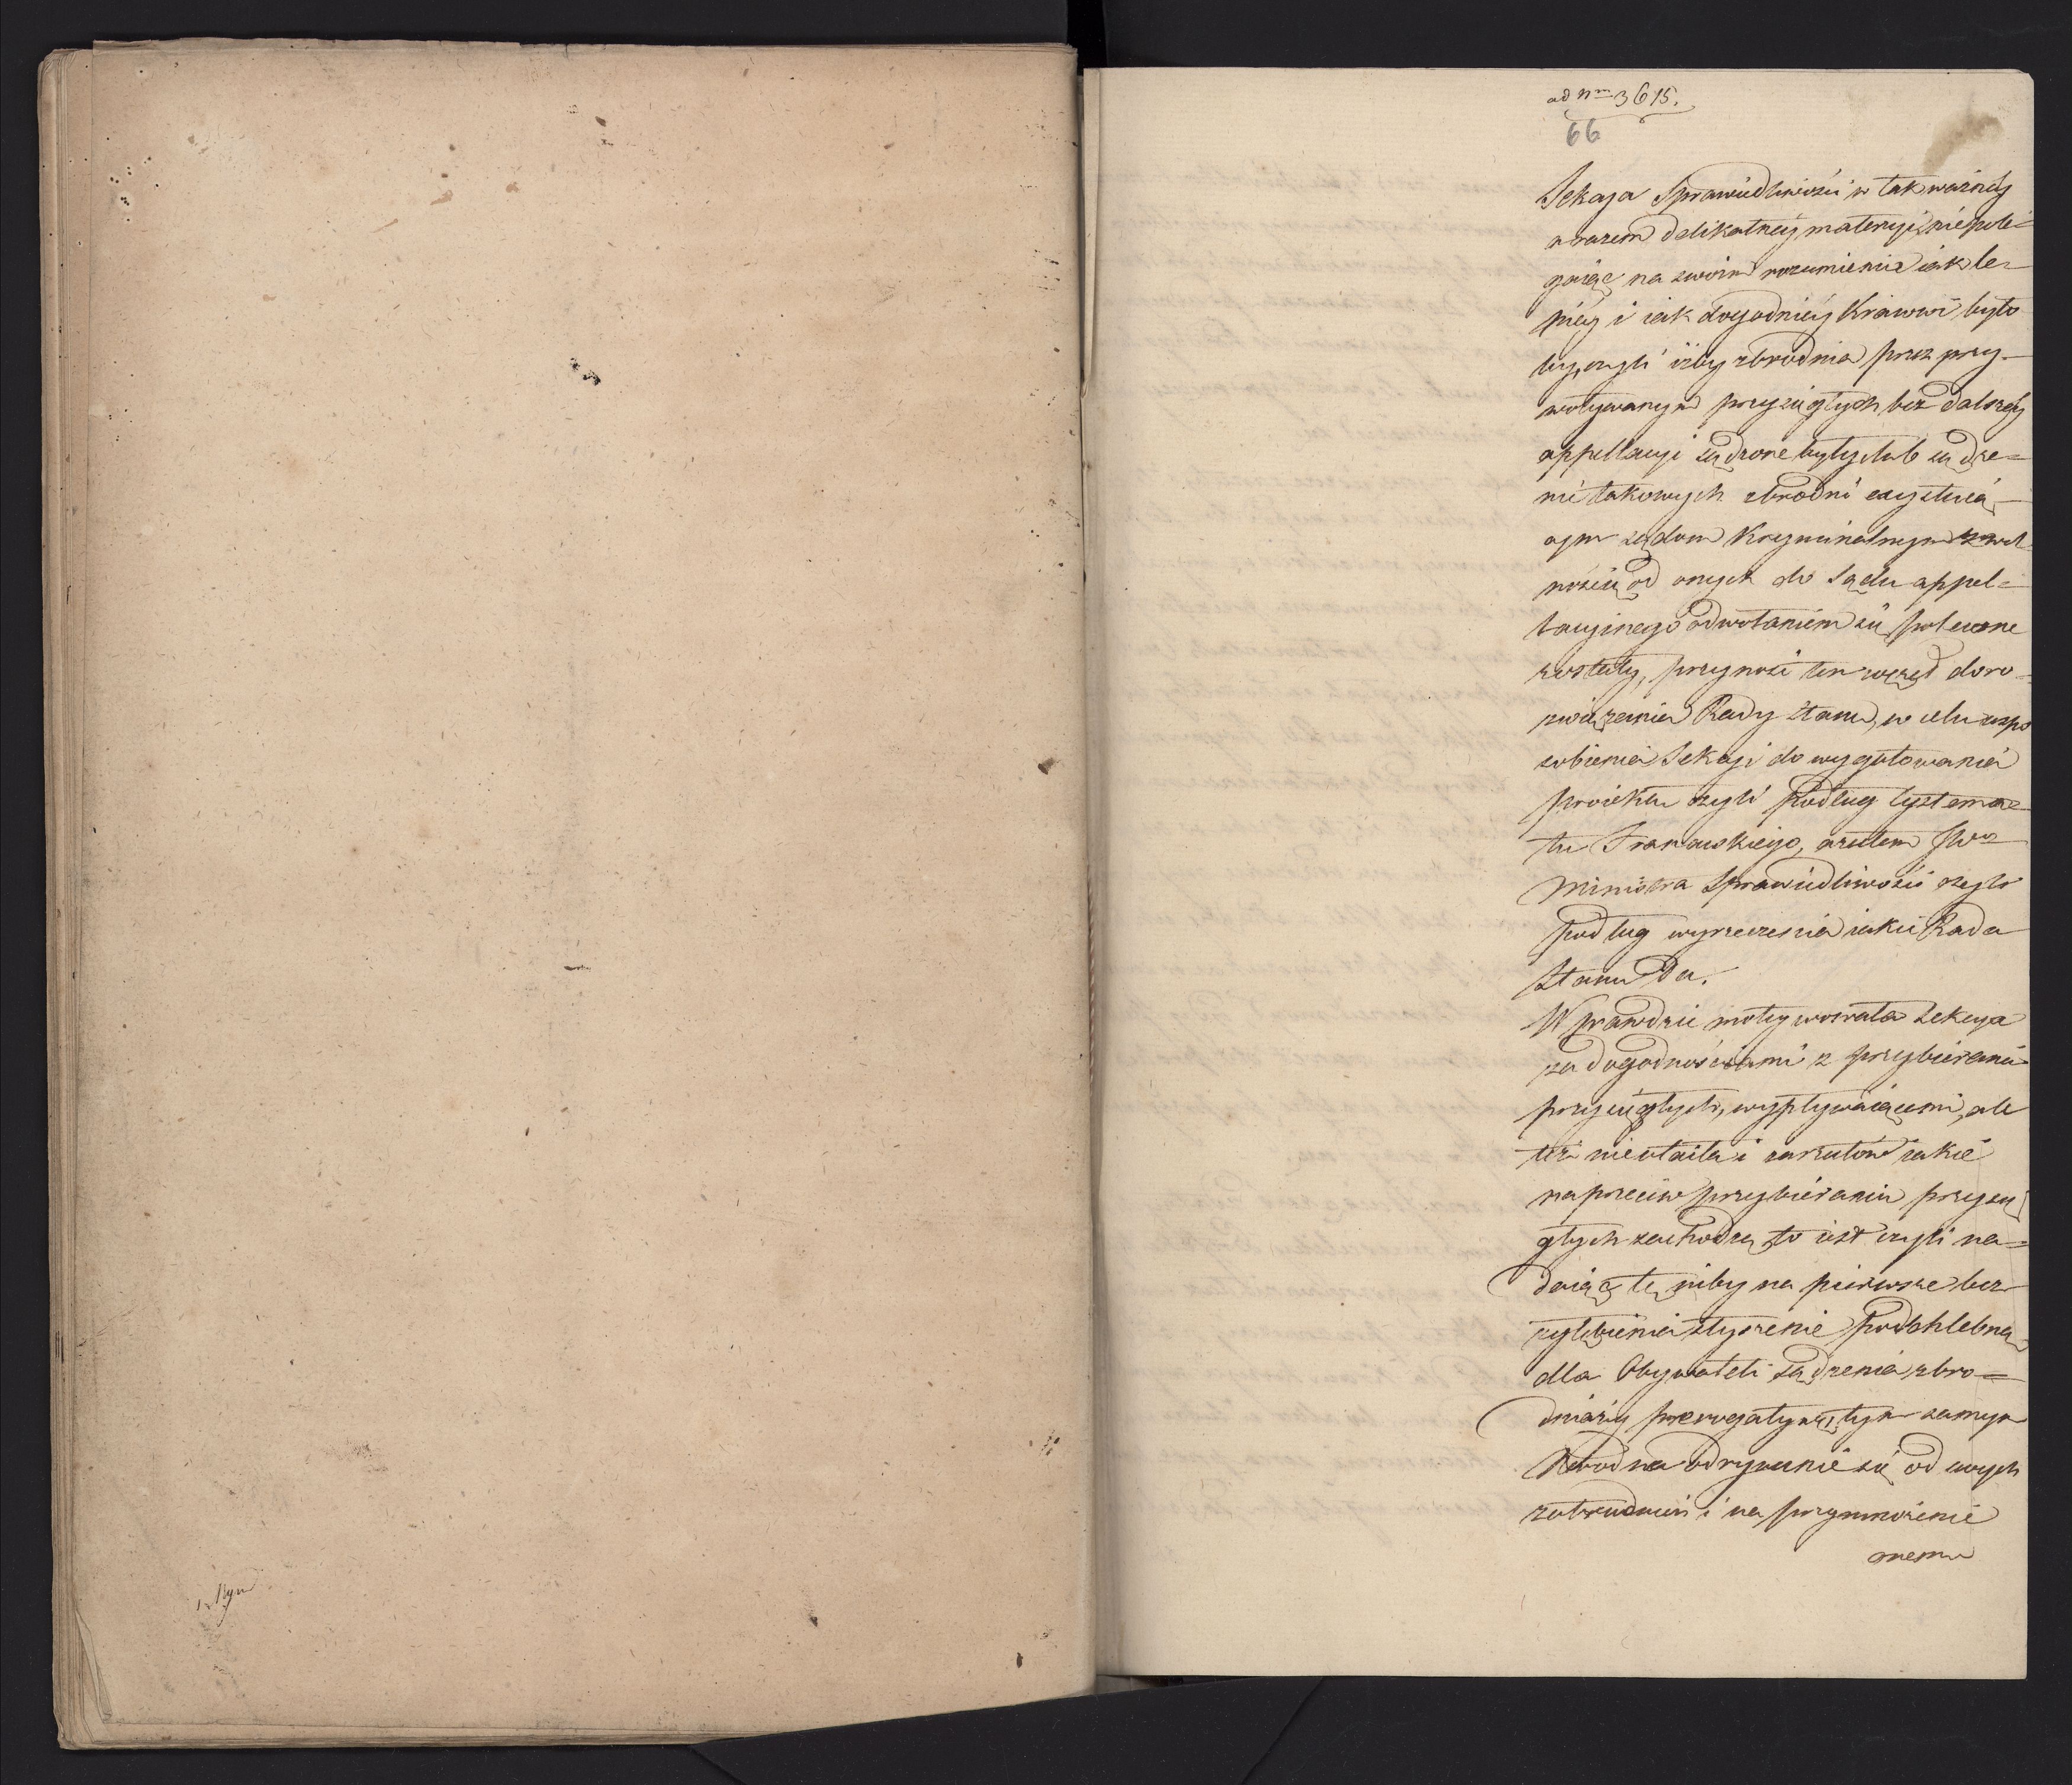 ad Nm 3615.
66
Sekcya Sprawiedliwości w tak ważnéy
a razem delikatnéy materyi, niepole=
gaiąc na swoim rozumieniu iak le=
piéy i iak dogodniéy Kraiowi było
by, czyli iżby zbrodnie przez przy=
woływanych przysięgłych bez dalszéy
appellacyi sądzone były, lub sądze=
nie takowych zbrodni exystuią=
cym sądom Kryminalnym z wol
nością od onych do Sądu appel=
lacyinego odwołaniem się polecone
zostały, przynosi ten wzgląd do ro=
związania Rady Stanu, w celu uspo
sobienia Sekcyi do wygotowania
proiektu czyli podług systema=
tu Francuskiego, a zatem JWo
Ministra Sprawiedliwości czyli
podług wyrzeczenia iakie Rada
Stanu da.
Wprawdzie motywowała Sekcya
za dogodnościami z przybierania
przysięgłych, wypływaiącemi, ale
też nie utaiła i zarzutów iakie
naprzeciw przybieraniu przysię
głych zachodzą, to iest czyli na=
daiąc tę niby na pierwsze bez
zgłębienia słyszenie podchlebną
dla Obywateli sądzenia zbro=
dniarzy prerogatywę, tym samym
Naród na odrywanie się od swych
zatrudnień i na przymnożenie
memu